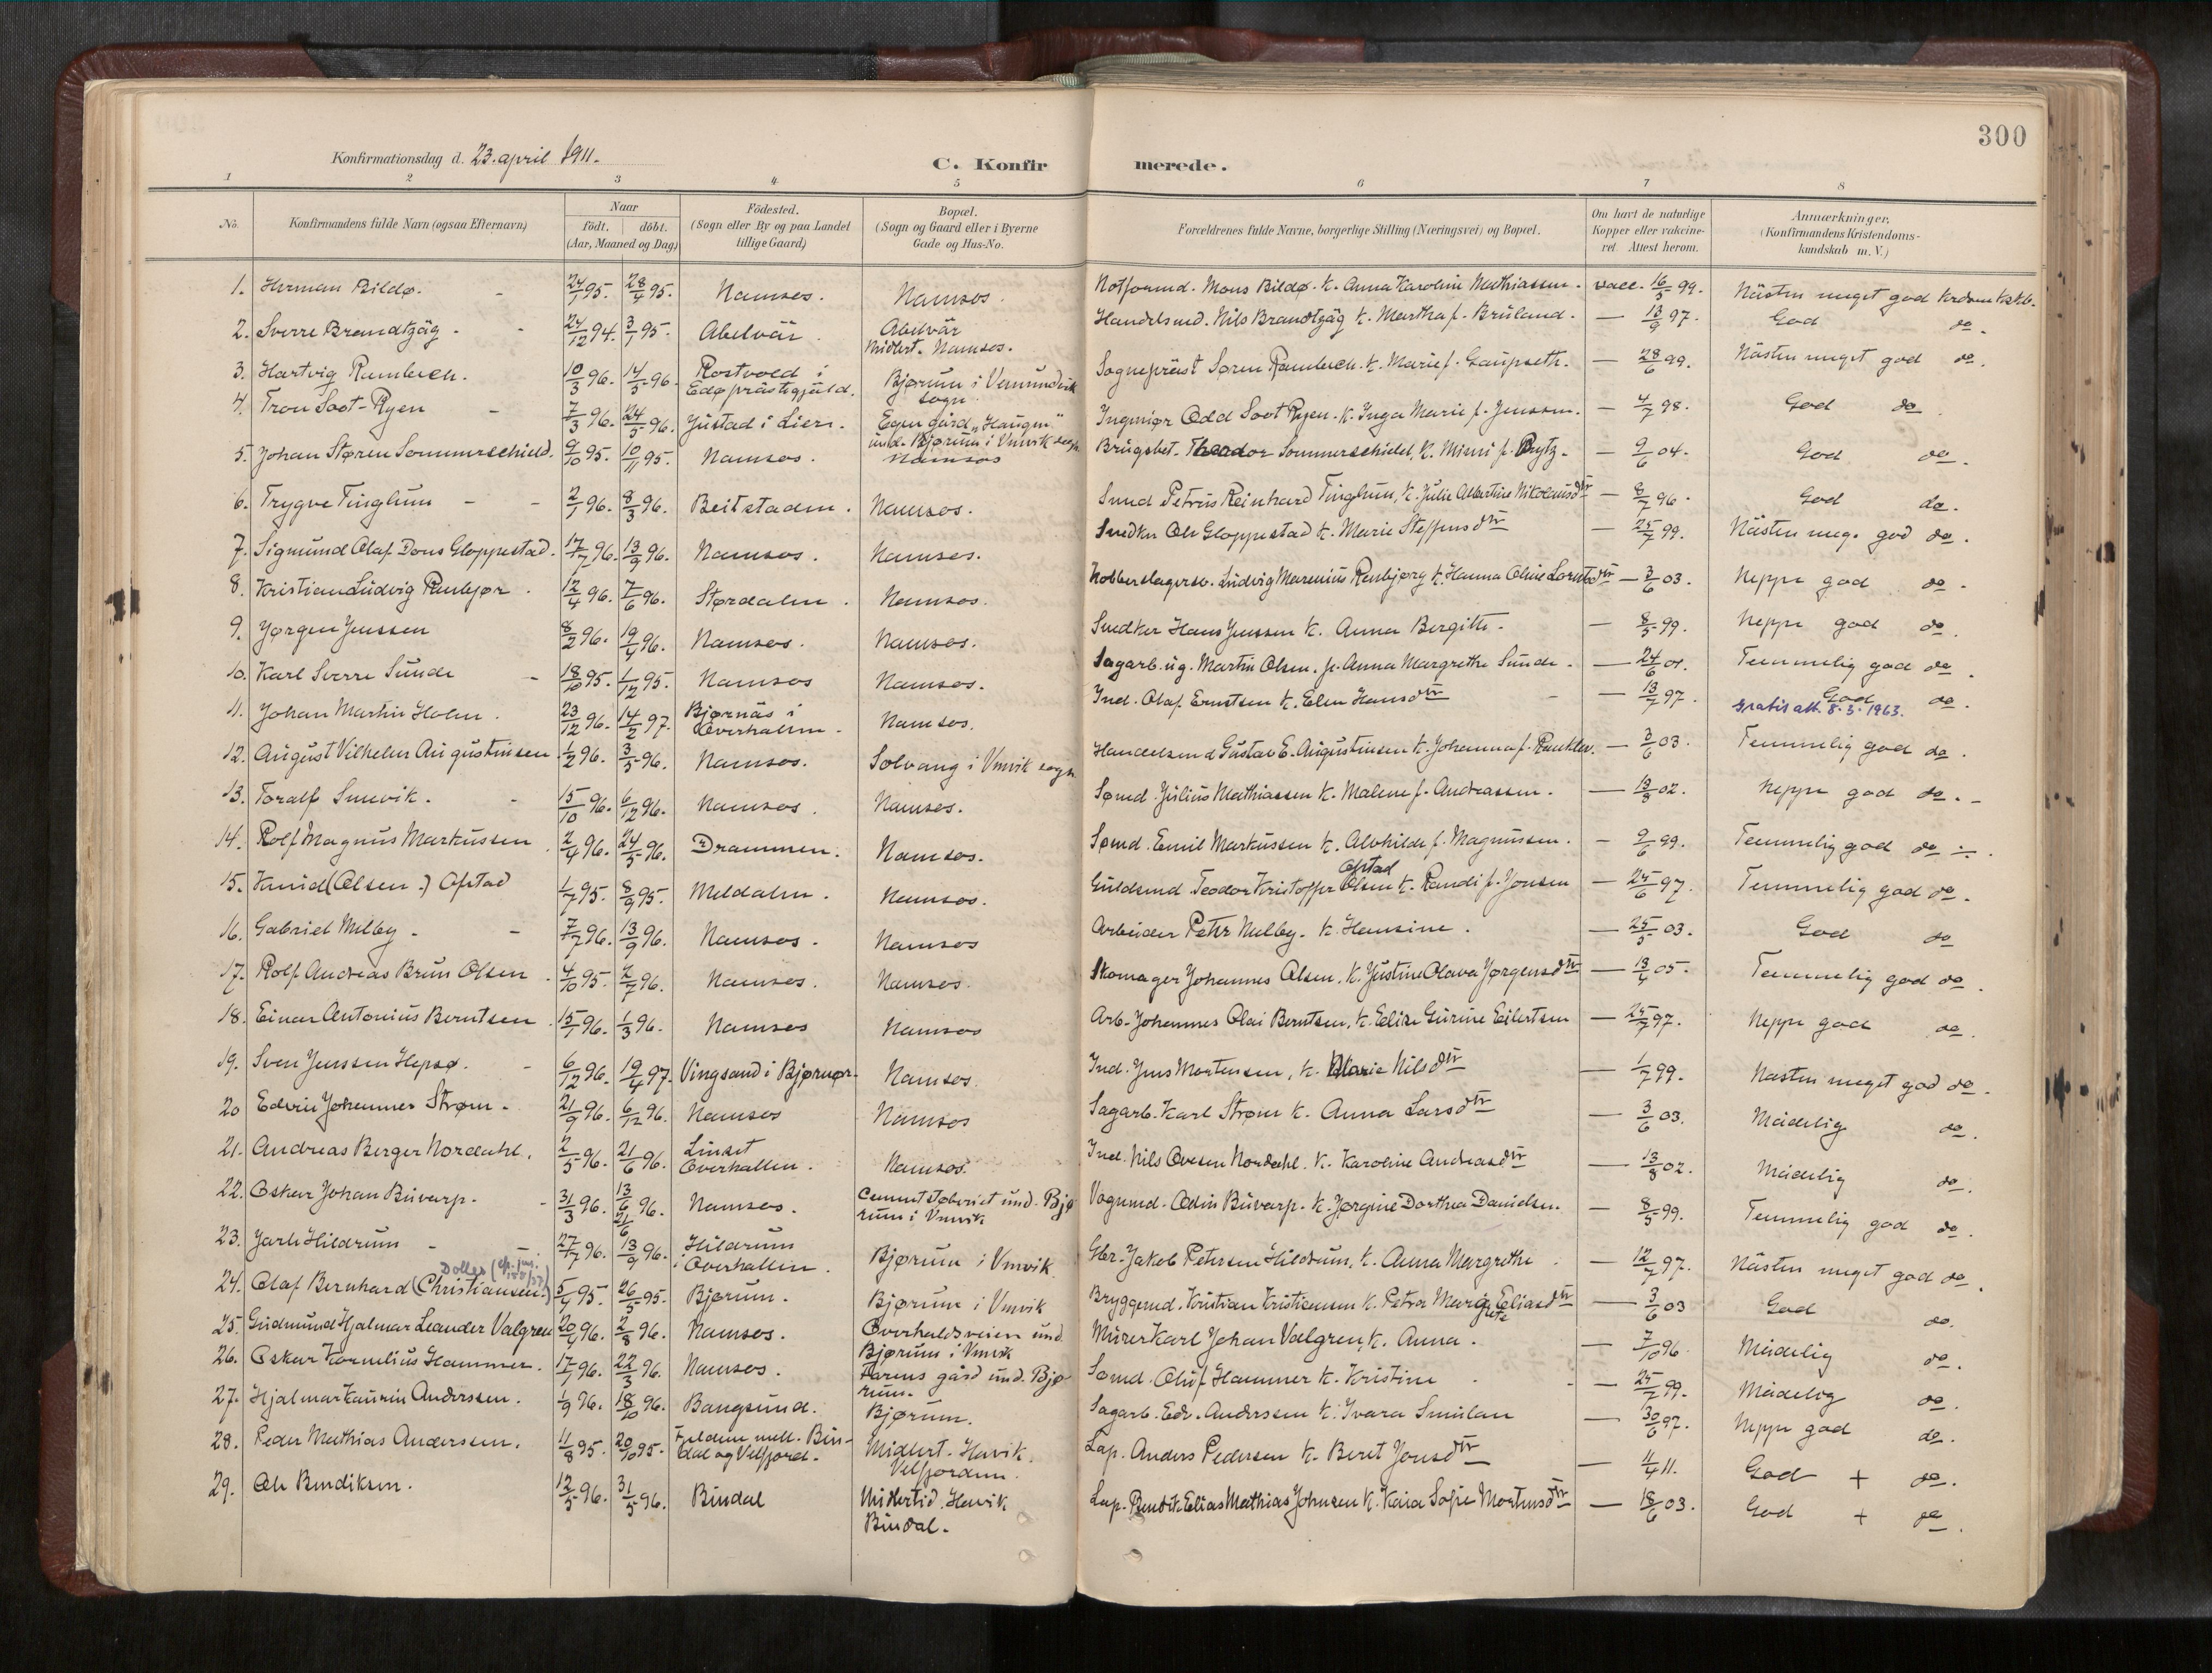 300
Konfirmationsdag d. 23. april 1911.
C. Konfir merede.
1 2 3 4 5 6 7 8
No. Konfirmandens fulde Navn (ogsaa Efternavn) Naar født. døbt. (Aar, Maaned og Dag) Födested. (Sogn eller By og paa Landet tillige Gaard) Bopæl. (Sogn og Gaard eller i Byerne Gade og Hus-No. Forældrenes fulde Navne, borgerlige Stilling (Næringsvei) og Bopæl. Om havt de naturlige Kopper eller vakcine-ret. Attest herom. Anmærkninger, (Konfirmandens Kristendoms-kundskab m. V.)
1. Herman Bildø. 24/1 95. 28/4 95. Namsos. Namsos. Mons Bildø. K. Anna Karoline Mathiassen. vacc. 16/5 99. Nästen meget god
2. Sverre Brandtzæg 24/12 94. 3/1 95. Abelvär. Abelvär Midlert. Namsos. Handelsmd. Nils Brandtzæg K. Martha f. Brüland. — 13/9 97. God do.
3. Hartvig Rambech. 10/3 96. 14/5 96. Rostvold i Edø prästegjäld. Bjørum i Vemundvik sogn Sogneprest Søren Rambech. K. Marie f. Gaupseth. — 28/6 99. Nästen meget god do.
4. Tron Soot-Ryen 7/3 96. 24/5 96. Justad i Lier. Egen gård "Haugen" und. Bjørum i Vmvik sogn Ingeniør Odd Soot Ryen. K. Inga Marie f. Jenssen. — 4/7 98. God do
5. Johan Støren Sommerschield. 9/10 95. 10/11 95. Namsos. Namsos Brugsbet. Theodor Sommerschield. K. Mimi f. Brytz. — 9/6 04. God do.
6. Trygve Tinglum 2/1 96. 8/3 96. Beitstaden. Namsos. Smed Petrus Reinhard Tinglum, K. Julie Albertine Nikolausdtr — 8/7 96. God do.
7. Sigmund Olaf Dons Gloppestad. 17/7 96. 13/9 96. Namsos. Namsos. Snedker Ole Gloppestad K. Marie Steffensdtr — 25/7 99. Nästen meg. god do.
8. Kristian Ludvig Renbjør. 12/4 96. 7/6 96. Størdalen. Namsos. Kobberslagersv. Ludvig Marenius Renbjørg K. Hanna Oline — 3/6 03. Neppe god do.
9. Jørgen Jenssen 8/2 96. 19/4 96. Namsos. Namsos. Snedker Hans Jenssen K. Anna Bergitte. — 8/5 99. Neppe god do.
10. Karl Sverre Sunde 18/10 95. 1/12 95. Namsos Namsos. Sagarb. ug. Martin Olsen. p. Anna Margrethe Sunde. — 24/6 01. Temmelig god do.
11. Johan Martin Holm. 23/12 96. 14/2 97. Bjørnäs i Overhallen. Namsos. Ind. Olaf Erntsen K. Elen Hansdtr — 13/7 97. God do. Gratis att. 8.3.1963.
12. August Vilhelm Augustinsen 1/2 96. 3/5 96. Namsos. Solvang i Vmvik sogn Handelsmd Gustav E. Augustinsen K. Johanna f. — 3/6 03. Temmelig god do.
13. Toralf Smevik. 15/10 96. 6/12 96. Namsos. Namsos. Sømd. Julius Mathiassen K. Malene f. Andreassen. — 13/8 02. Neppe god do.
14. Rolf Magnus Markussen 2/4 96. 24/5 96. Drammen. Namsos. Sømd. Emil Markussen K. Alvhilde f. Magnussen. — 9/6 99. Temmelig god do
15. Knud (Olsen) Ofstad 1/7 95. 8/9 95. Meldalen. Namsos. Guldsmd Teodor Kristoffer Olsen Ofstad K. Randi f. Jonsen — 25/6 97. Temmelig god do.
16. Gabriel Melby. 7/7 96. 13/9 96. Namsos. Namsos Arbeider Peter Melby. K. Hansine. — 25/5 03. God do
17. Rolf Andreas Brun Olsen. 4/10 95. 2/7 96. Namsos. Namsos. Skomager Johannes Olsen. K. Justine Olava Jørgensdtr — 13/4 05. Temmelig god do.
18. Einar Antonius Berntsen. 15/1 96. 1/3 96. Namsos Namsos Arb. Johannes Olai Berntsen, K. Elise Gurine Eilertsen — 25/7 97. Neppe god do.
19. Sven Jenssen Hepsø. 6/12 96. 19/4 97. Vingsand i Bjørnør. Namsos. Ind. Jens Mortensen, K. Marie Nilsdtr — 1/7 99. Nästen meget god do.
20 Edvin Johannes Strøm. 21/9 96. 6/12 96. Namsos Namsos Sagarb. Karl Strøm K. Anna Larsdtr — 3/6 03. Mådelig do.
21. Andreas Berger Nordahl. 2/5 96. 21/6 96. Linset Overhallen. Namsos. Ind. Nils Ovesen Nordahl. K. Karoline Andreasdtr — 13/8 02. Mådelig do.
22. Oskar Johan Buvarp. 31/3 96. 13/6 21/6 96. Namsos. Cementstøberiet und. Bjørum i Vmvik Vognmd. Odin Buvarp. K. Jørgine Dorthea Danielsen. — 8/5 99. Temmelig god do.
23. Jarle Hildrum 27/7 96. 13/9 96. Hildrum i Overhallen. Bjørum i Vmvik Gbr. Jakob Petersen Hildrum, K. Anna Margrethe. — 12/7 97. Nästen meget god do.
24. Olaf Bernhard (Christiansen.) Dolles 5/4 95. 26/5 95. Bjørum. Bjørum i Vmvik Bryggemd. Kristian Kristiansen K. Petra Margrete Eliasdtr — 3/6 03 God do.
25. Gudmund Hjalmar Leander Valgren 20/4 96. 2/8 96. Namsos. Overhaldsveien und. Bjørum i Vmvik Murer Karl Johan Valgren, K. Anna. — 7/10 96. Mådelig do.
26. Oskar Kornelius Hammer. 17/1 96. 22/3 96. Namsos. Farens gård und. Bjørum. Sømd. Oluf Hammer K. Kristine — 25/7 99. Mådelig do.
27. Hjalmar Laurin Anderssen. 1/9 96. 18/10 96. Bangsund. Bjørum. Sagarb. Edv. Anderssen K. Ivara Smulan — 30/6 97. Neppe god do.
28. Peder Mathias Anderssen. 11/8 95. 20/10 95. mell. Bindal og Velfjord. Midlert. Havik. Velfjorden. Lap. Anders Pedersen K. Beret Jonsdtr — 11/4 11. God + do.
29. Ole Bendiksen. 12/5 96. 31/5 96. Bindal Midlertid. Havik Bindal. Lap. Bendik Elias Mathias Johnsen K. Kaia Sofie Mortensdtr — 18/6 03. God + do.